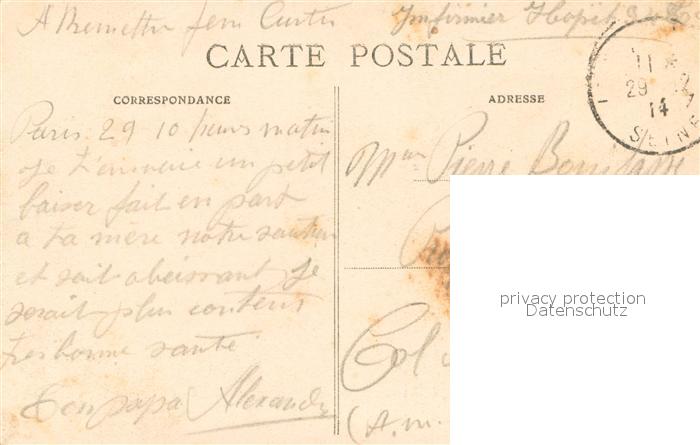 A Remettre Jean Curtis Infirmier Hopit
CARTE POSTALE
11
29 12
14
SEINE
CORRESPONDANCE
ADRESSE
Paris 29 10 heurs matin
Je t'envoie un petit
baiser fait en part
a ta mère notre
et soit obeissant Je
serait plus content
tres bonne santé
Ton papa Alexandre
Mme Pierre
Col
(A. m.
privacy protection
Datenschutz